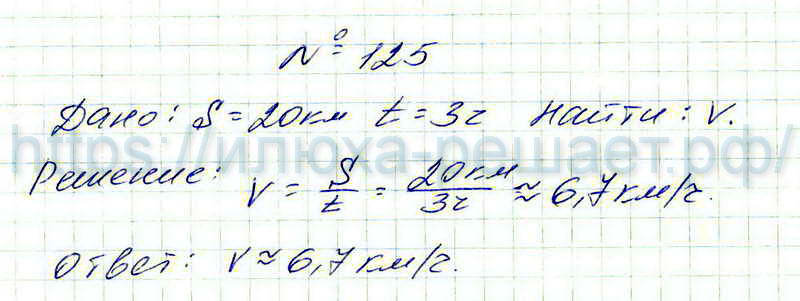 № 125
Дано: S = 20км t = 3ч Найти: v.
https://илюха-решает.рф/
Решение: v = S/t = 20км/3ч ≈ 6,7км/ч.
Ответ: v ≈ 6,7км/ч.